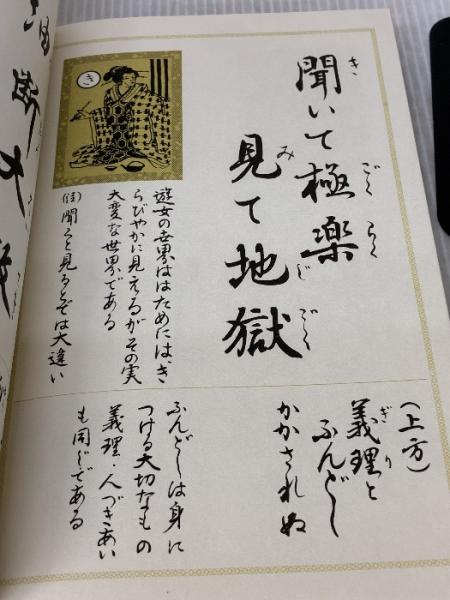 聞いて極楽
見て地獄
き
遊女の世界ははためにはき
らびやかに見えるがその実
大変な世界である
聞くと見るとでは大違い
(上方)
義理と
ふんどし
かかされぬ
ふんどしは身に
つける大切なもの
義理・人づきあい
も同じである